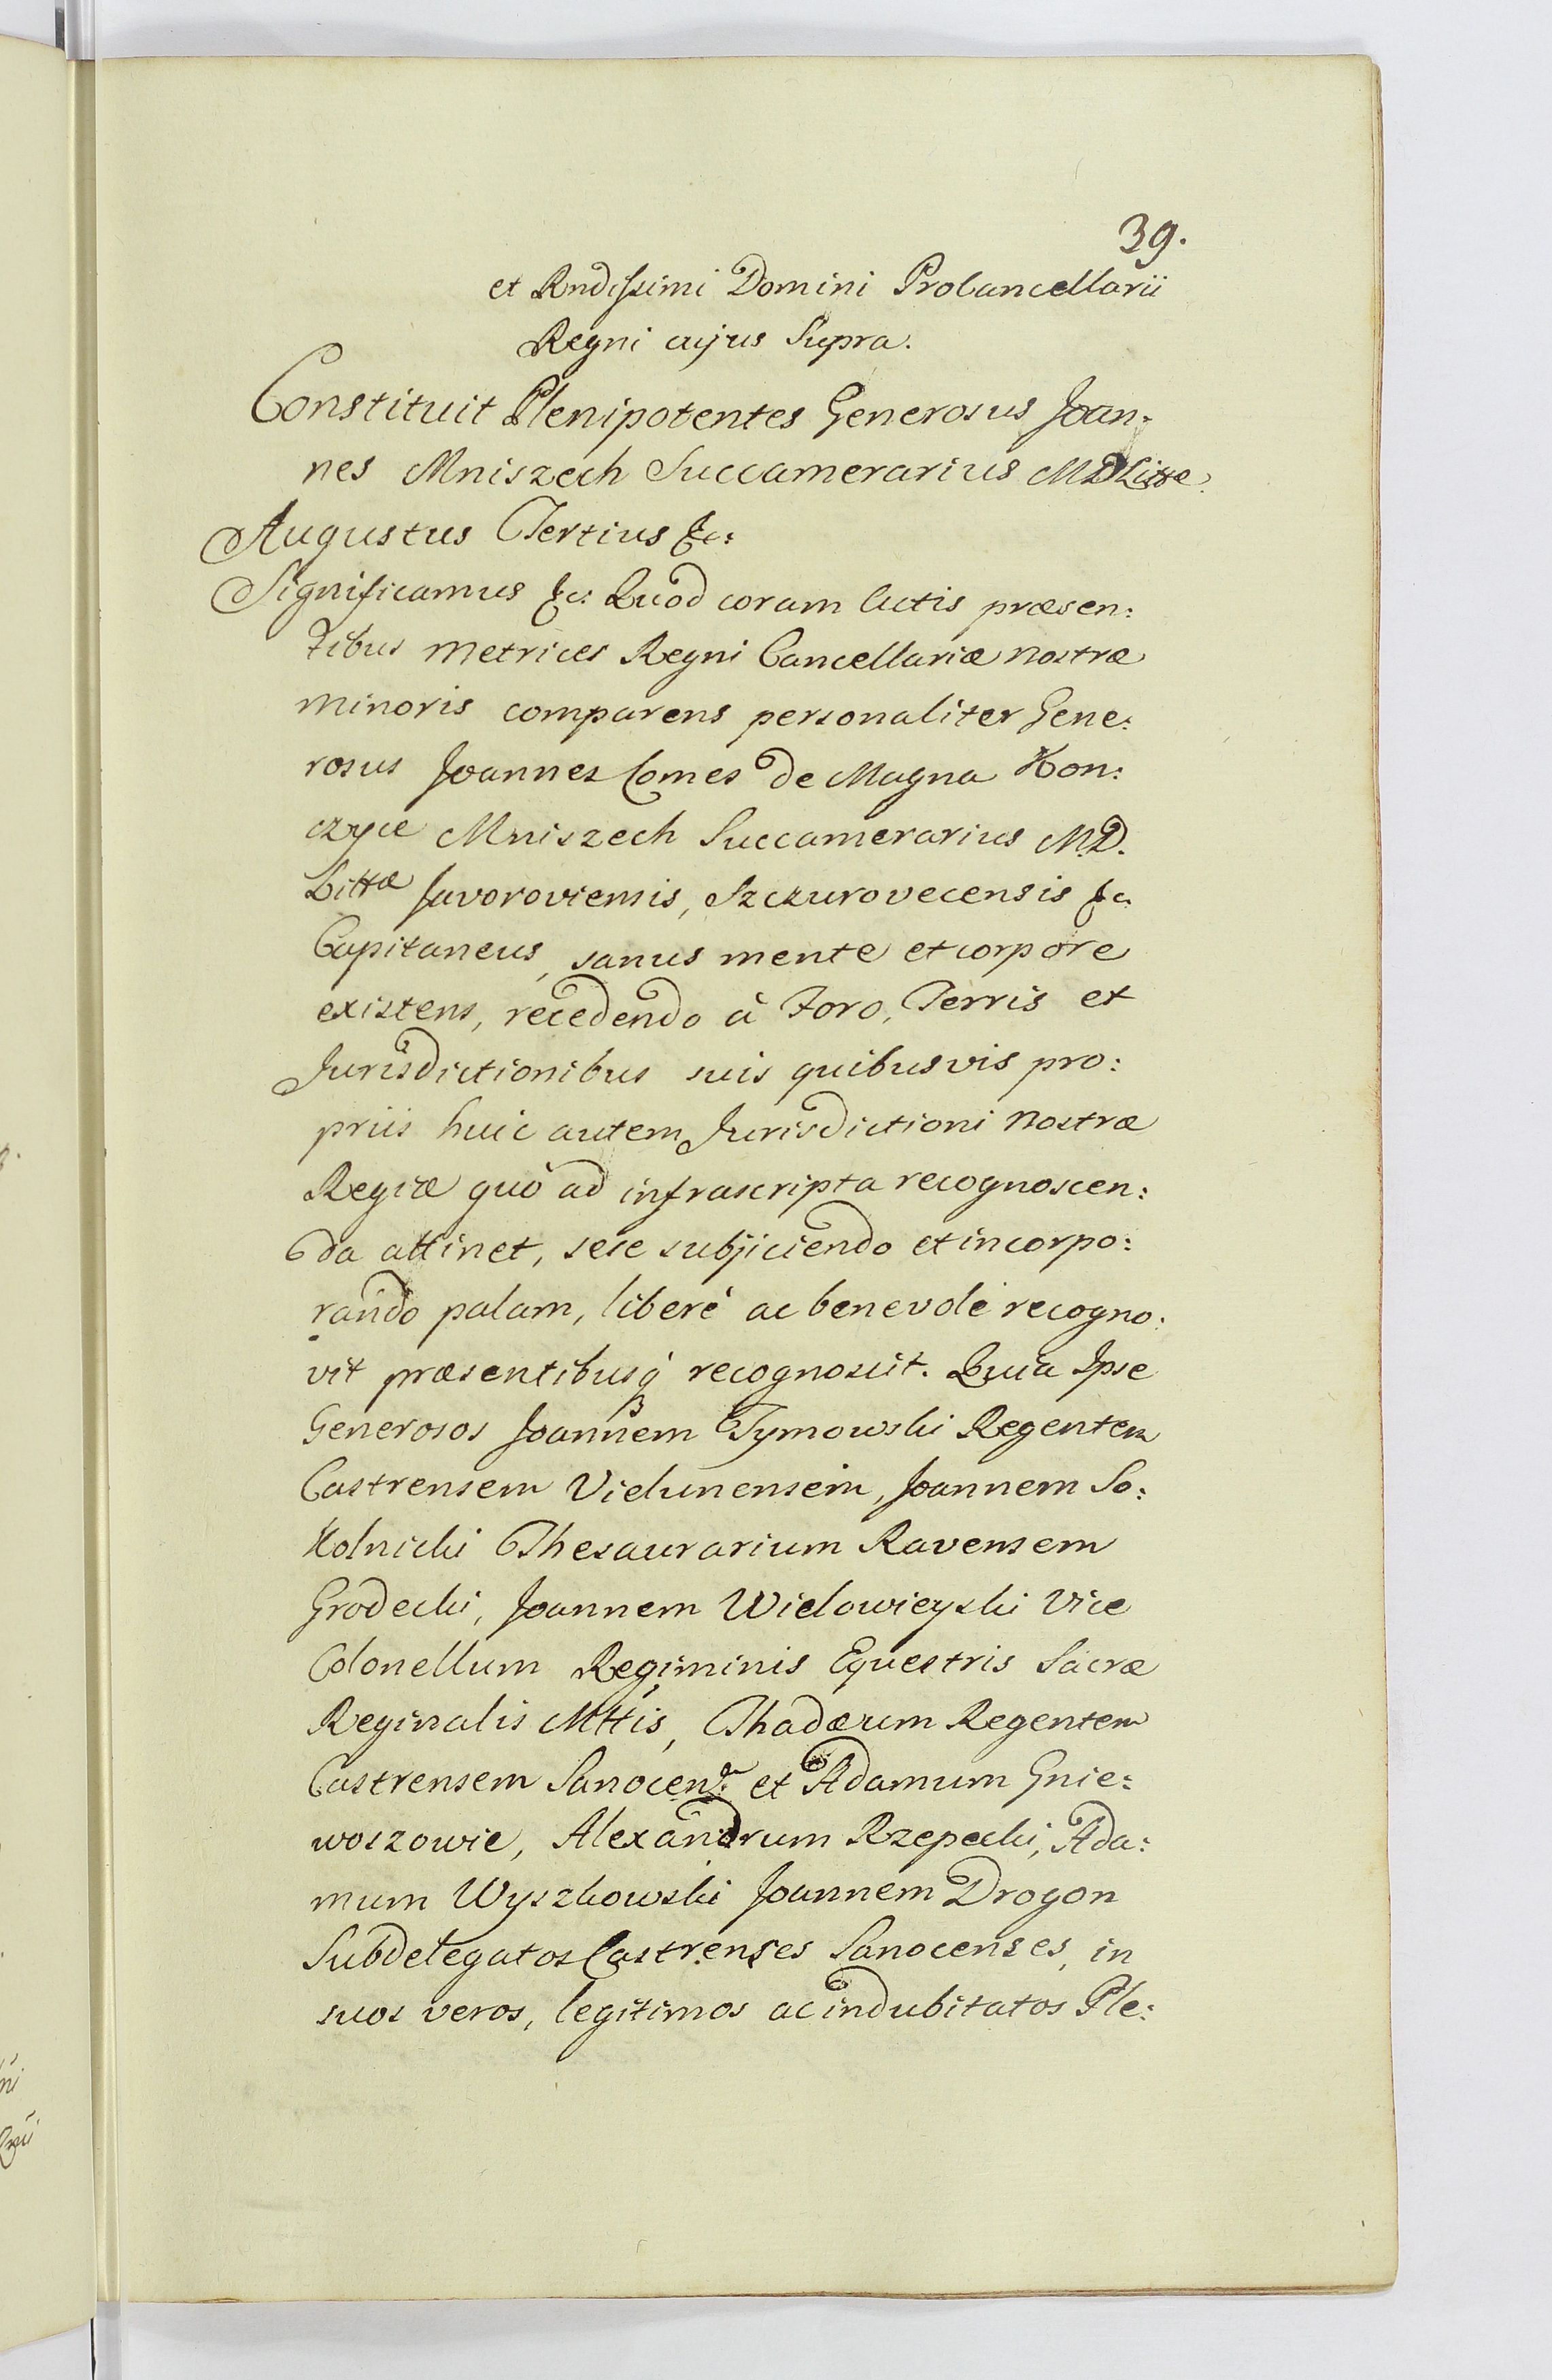 39.
et Rndissimi Domini Procancellarii
Regni cujus Supra.
Constituit Plenipotentes Generosus Joan:
nes Mniszech Succamerarius MDLittæ
Augustus Tertius &c:
Significamus &c: Quod coram Actis præsen:
tibus Metrices Regni Cancellariæ nostræ
minoris comparens personaliter Gene:
rosus Joannes Comes de Magna Kon:
czyce Mniszech Succamerarius M.D.
Littæ Javoroviensis, Szczurovecensis &c.
Capitaneus, sanus mente et corpore
existens, recedendo à Foro, Terris et
Jurisdictionibus suis quibusvis pro:
priis huic autem Jurisdictioni nostræ
Regiæ quò ad infrascripta recognoscen:
da attinet, sese subjiciendo et incorpo:
rando palam, liberè ac benevolè recogno:
vit præsentibusq́ recognoscit. Quia Ipse
Generosos Joannem Tymowski Regentem
Castrensem Vielunensem, Joannem So:
kolnicki Thesaurarium Ravensem
Grodecki, Joannem Wielowieyski Vice
Colonellum Regiminis Equestris Sacræ
Reginalis Mttis, Thadæum Regentem
Castrensem Sanocen: et Adamum Gnie:
woszowie, Alexandrum Rzepecki, Ada:
mum Wyszkowski Joannem Drogon
Subdelegatos Castrenses Sanocenses, in
suos veros, legitimos ac indubitatos Ple: